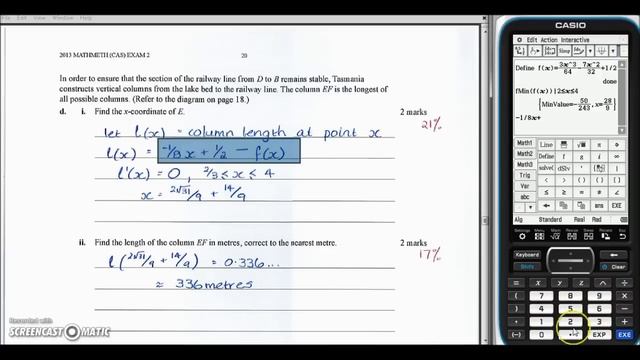 CASIO
2013 MATHMETH (CAS) EXAM 2
20
Edit Action Interactive
Define f(x)=3x^3/64 - 7x^2/32 +1/2
done
fMin(f(x))|2≤x≤4
{MinValue=-50/243, x=28/9}
-1/8x+
In order to ensure that the section of the railway line from D to B remains stable, Tasmania
constructs vertical columns from the lake bed to the railway line. The column EF is the longest of
all possible columns. (Refer to the diagram on page 18.)
d. i. Find the x-coordinate of E.
2 marks
21%
let l(x) = column length at point x
l(x) = -1/8 x + 1/2 - f(x)
l'(x) = 0, 2/3 ≤ x ≤ 4
x = 2√31/9 + 14/9
ii. Find the length of the column EF in metres, correct to the nearest metre.
2 marks
17%
l(2√31/9 + 14/9) = 0.336...
≈ 336 metres
Math1
Line
Math2
Define
Math3
solve(
Trig
Var
abc
ans
EXE
Alg
Standard
Real
Rad
Keyboard
Shift
Clear
7 8 9
4 5 6
1 2 3
(−) 0 . EXP EXE
Recorded with
SCREENCAST MATIC